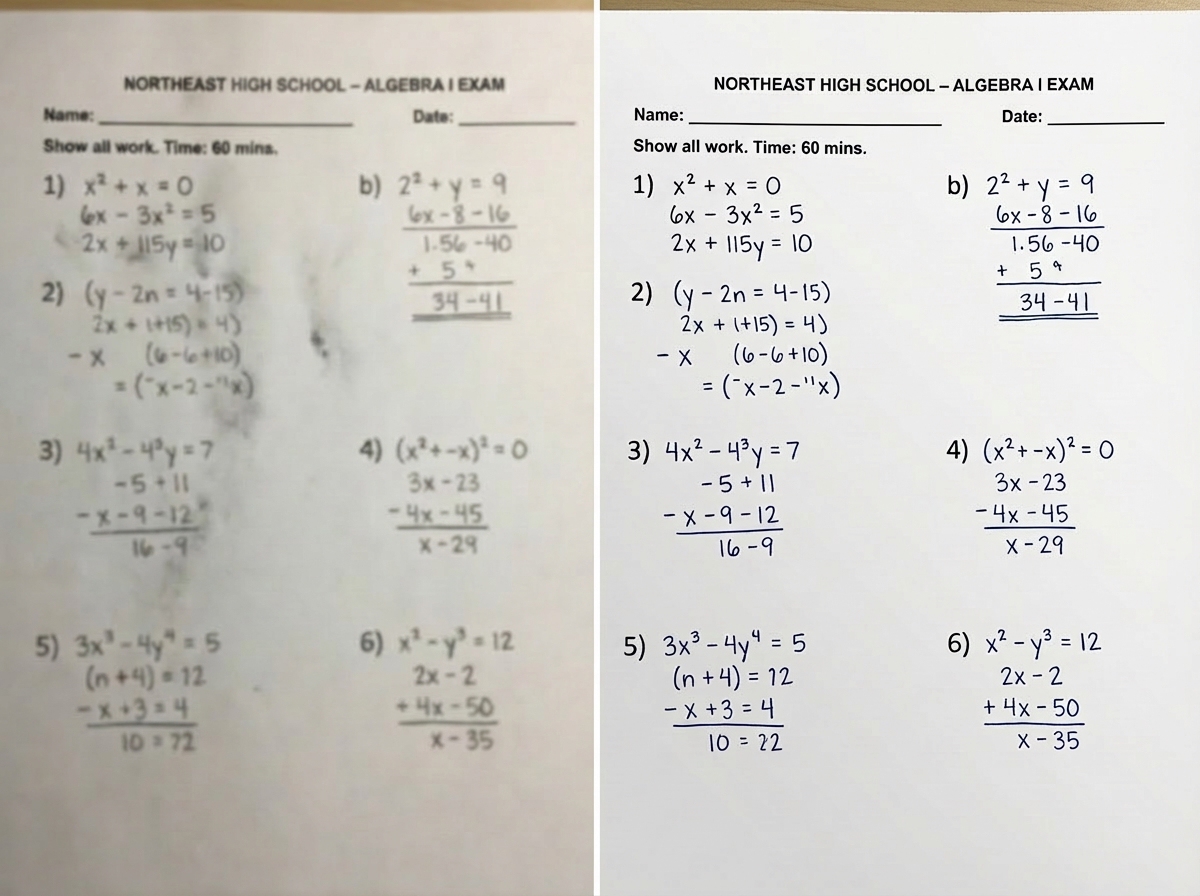 NORTHEAST HIGH SCHOOL – ALGEBRA I EXAM
Name: Date:
Show all work. Time: 60 mins.
1) x² + x = 0
6x − 3x² = 5
2x + 115y = 10
b) 2² + y = 9
6x − 8 − 16
1.56 − 40
+ 5
34 − 41
2) (y − 2n = 4−15)
2x + (+15) = 4)
− x (6−6+10)
= (⁻x−2−"x)
3) 4x² − 4³y = 7
−5 + 11
− x − 9 − 12
16 − 9
4) (x²+−x)² = 0
3x − 23
−4x − 45
x − 29
5) 3x³ − 4y⁴ = 5
(n + 4) = 12
− x + 3 = 4
10 = 72
6) x² − y³ = 12
2x − 2
+ 4x − 50
x − 35
NORTHEAST HIGH SCHOOL – ALGEBRA I EXAM
Name: Date:
Show all work. Time: 60 mins.
1) x² + x = 0
6x − 3x² = 5
2x + 115y = 10
b) 2² + y = 9
6x − 8 − 16
1.56 − 40
+ 5
34 − 41
2) (y − 2n = 4−15)
2x + (+15) = 4)
− x (6−6+10)
= (⁻x−2−"x)
3) 4x² − 4³y = 7
−5 + 11
− x − 9 − 12
16 − 9
4) (x²+−x)² = 0
3x − 23
−4x − 45
x − 29
5) 3x³ − 4y⁴ = 5
(n + 4) = 12
− x + 3 = 4
10 = 22
6) x² − y³ = 12
2x − 2
+ 4x − 50
x − 35